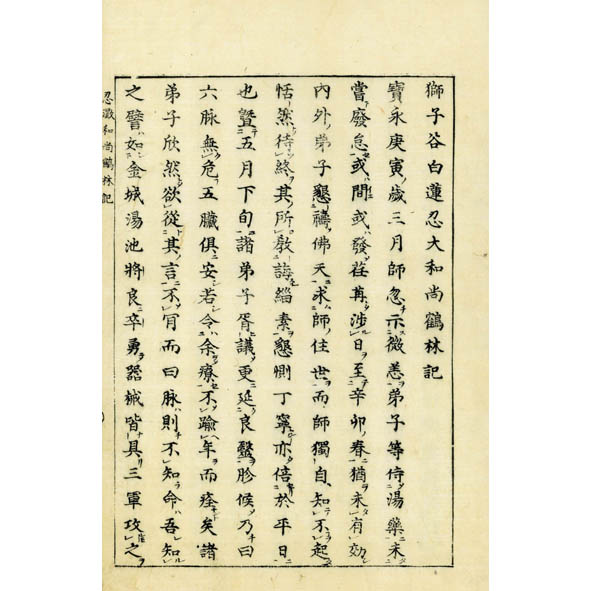 獅子谷白蓮忍大和尚鶴林記
寶永庚寅歲三月師忽示微恙弟子等侍湯藥未
嘗廢怠或間或發荏苒涉日至辛卯春猶未有効
內外弟子懇禱佛天求師住世而師獨自知不起
恬然待終其所教誨緇素懇惻丁寧亦倍於平日
也曁五月下旬諸弟子胥議更延良醫胗候乃曰
六脉無危五臟俱安若令余療不踰年而痊矣諸
弟子欣然欲從其言不肎而曰脉則不知命吾知
之譬如金城湯池將良卒勇器械皆具三軍攻之
忍澂和尚鶴林記